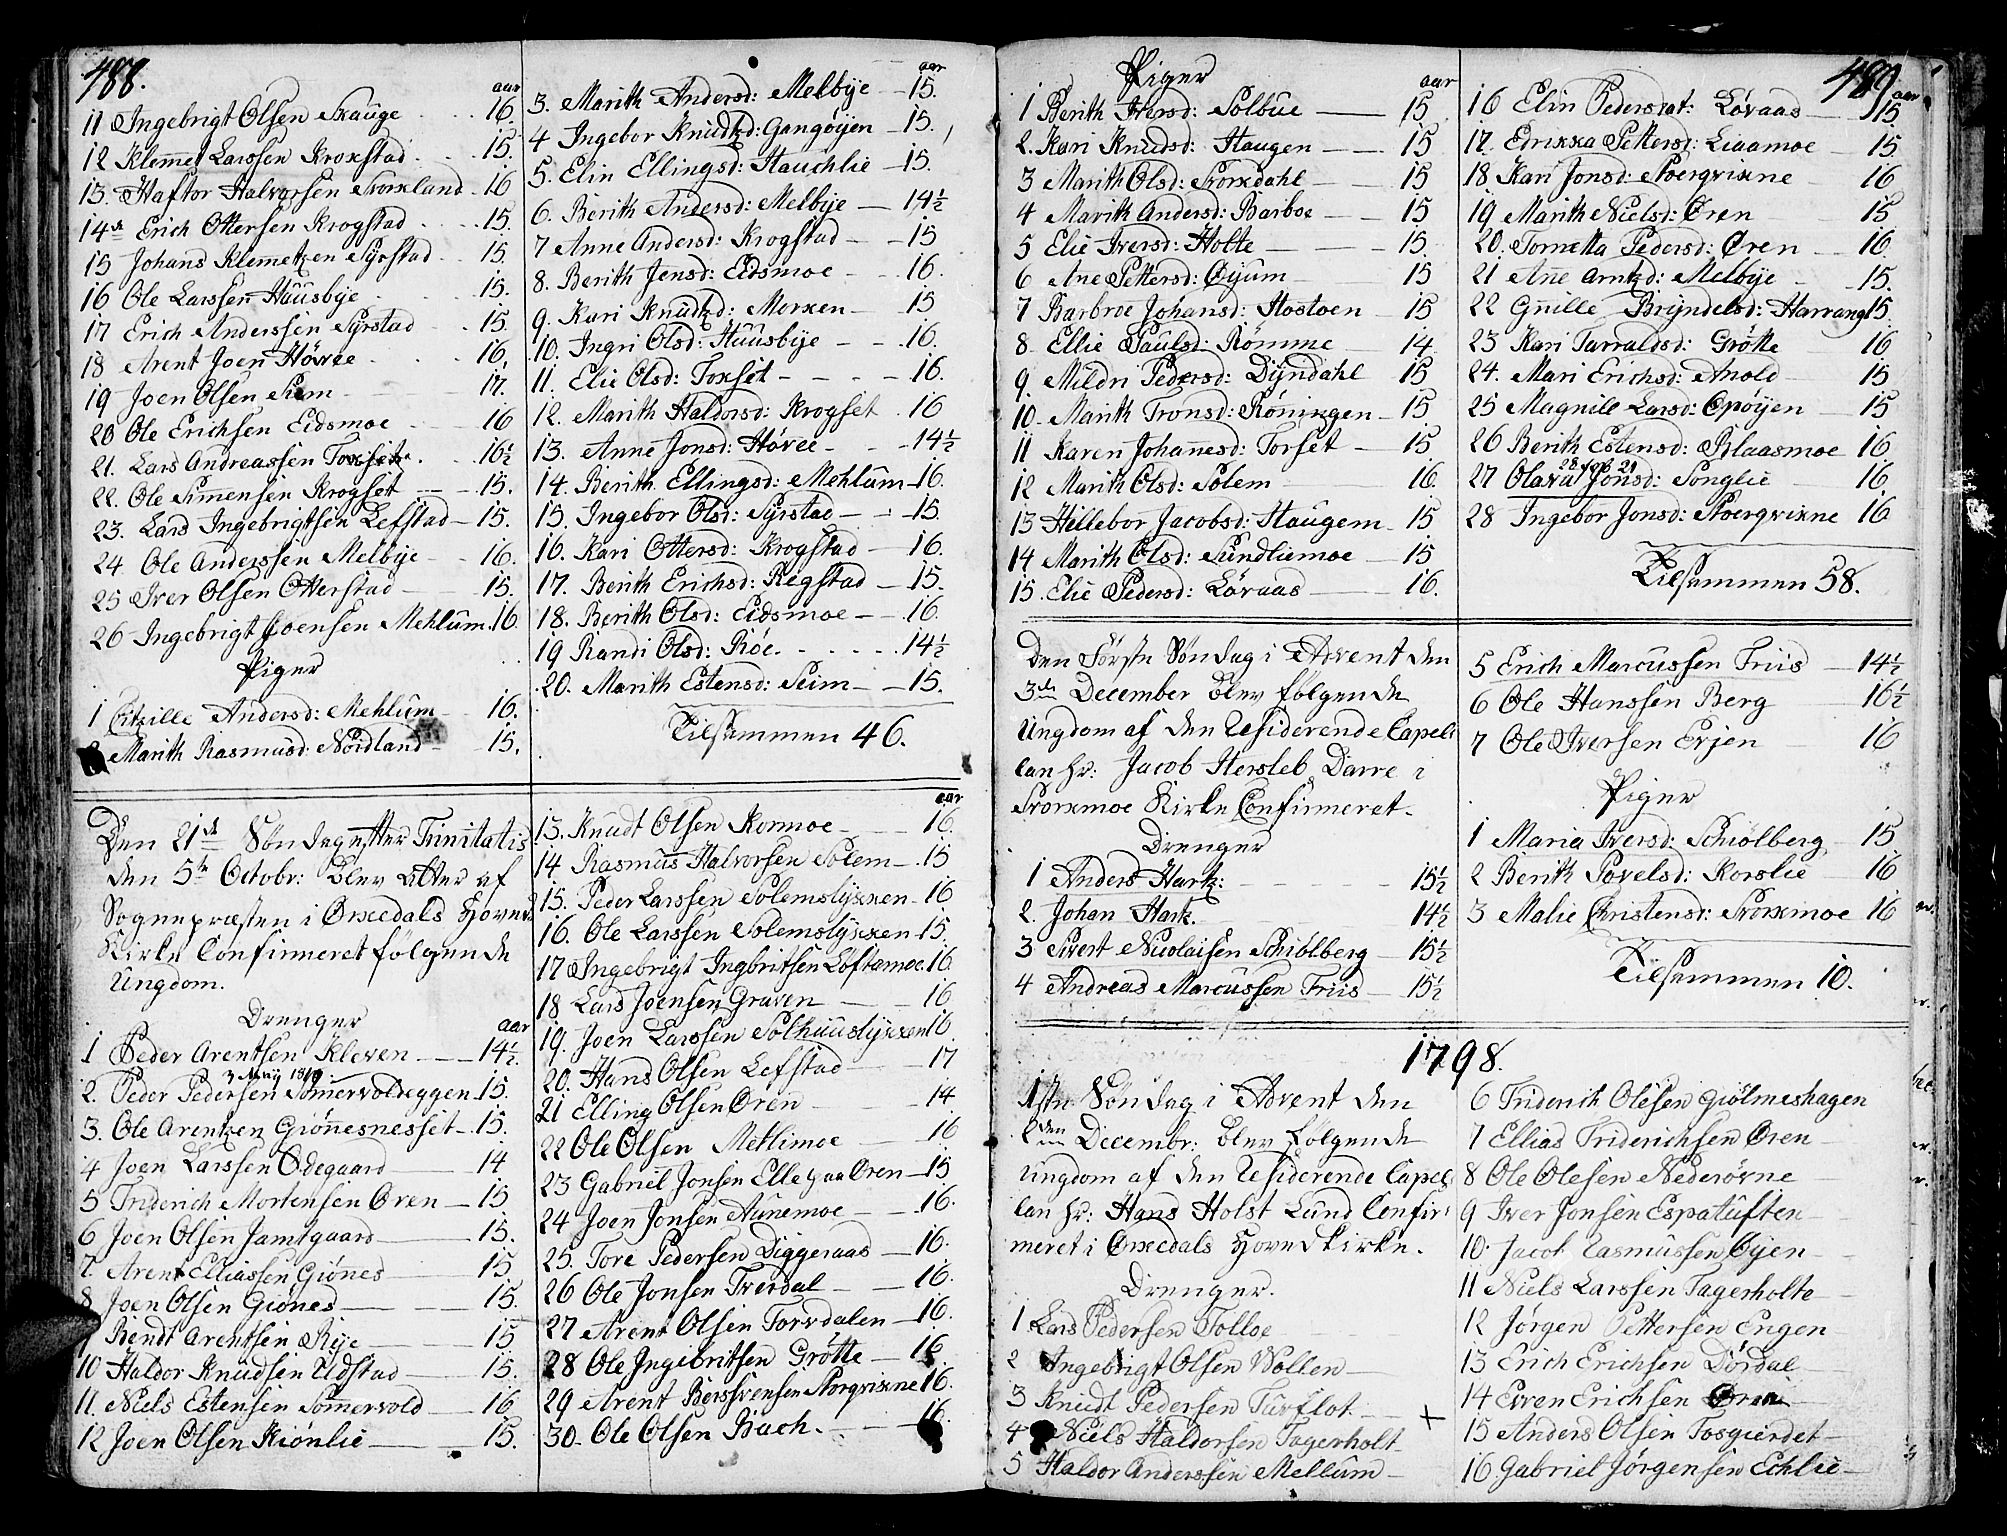 488.
aar
11 Ingebrigt Olsen Skauge 16.
12 Klemmet Larssen Kroxstad 15.
13. Haftor Halvorsen Storxland 16
14de Erich Ottersen Krogstad 15.
15 Johans Klemetzen Syrstad 15.
16 Ole Larssen Huusbye 15.
17 Erich Anderssen Syrstad 15.
18 Arent Joen Høvee 16.
19 Joen Olsen Siem 17.
20 Ole Erichsen Eidsmoe 16
21. Lars Andreassen Toxset 16½
22. Ole Simensen Krogset 15.
23. Lars Ingebrigtsen Lefstad 15.
24 Ole Anderssen Melbye 16.
25 Iver Olsen Otterstad 15.
26 Ingebrigt Joensen Mehlum 16.
Piger
1 Citzille Andersd: Mehlum 16.
2 Marith Rasmusd: Nordland 15.
aar
3. Marith Andersd: Melbye 15.
4 Ingebor Knudtzd: Gangøyen 15.
5. Elin Ellingsd: Hauchlie 15.
6. Berith Andersd: Melbye 14½
7 Anne Andersd: Krogstad 15
8. Berith Jensd: Eidsmoe 16.
9. Kari Knudtzd: Morken 15
10. Ingri Olsd: Huusbye 16.
11. Elie Olsd: Toxset 16.
12. Marith Haldorsd: Krogset 16
13. Anne Jonsd: Høvee 14½
14. Berith Ellingsd: Mehlum 16.
15. Ingebor Olsd: Syrstad 15.
16. Kari Ottersd: Krogstad 16.
17. Berith Erichsd: Regstad 15.
18. Berith Olsd: Eidsmoe 16.
19 Randi Olsd: Røe 14½
20. Marith Estensd: Seim 15.
Tilsammen 46.
Den 21de Søndag etter Trinitatis
den 5te Octobr: blev atter af
Sognepræsten i Orkedals Hoved
Kirke Confirmeret følgende
Ungdom.
Drenger
aar
1 Peder Arentsen Kleven 14½
3 May 1819
2. Peder Pedersen Somervoldeggen 15.
3. Ole Arentzen Giønnesnesset 15.
4 Joen Larssen Ødegaard 14
5 Friderich Mortensen Oren 15
6 Joen Olsen Jamtgaard 15.
7. Arent Elliassen Giønes 15
8 Joen Olsen Giønes 15.
9 Bendt Arentsen Rije 15
10 Haldor Knudsen Udstad 15.
11. Niels Estensen Somervold 16
12 Joen Olsen Kiønlie 15.
aar
13. Knudt Olsen Kormoe 16.
14 Rasmus Halvorsen Solem 15
15. Peder Larssen Solemslykken 16
16. Ole Larssen Solemslykken 15.
17 Ingebrigt Ingbritsen Løftamoe 16.
18 Lars Joensen Graven 16
19. Joen Larssen Solhuuslykken 16
20. Hans Olsen Lefstad 17
21 Elling Olsen Oren 14.
22 Ole Olsen Metlimoe 16
23 Gabriel Jonsen Elle paa Oren 15
24 Joen Jonsen Aunemoe 16.
25. Tore Pedersen Diggeraas 16.
26 Ole Jonsen Tverdal 16.
27 Arent Olsen Torvdalen 16.
28 Ole Ingebritsen Grøtte 16
29 Arent Berssvensen Storqvixne 16.
30. Ole Olsen Bach. 16.
489.
Piger
aar
1 Berith Iversd: Solbue 15
2. Kari Knudsd: Haugen 15
3 Marith Olsd: Storxdahl 15
4 Marith Andersd: Barboe 15
5 Elie Iversd: Holte 15.
6 Ane Pettersd: Øyum 15
7 Barbroe Johansd: Hostoen 15
8 Ellie Paulsd: Rømme 14
9. Mildri Pedersd: Dyndahl 15
10. Marith Tronsd: Røningen 15
11 Karen Johannesd: Torset 15.
12 Marith Olsd: Solem 16.
13 Hillebor Jacobsd: Haugem 15
14 Marith Olsd: Sundliemoe 15
15. Elie Pedersd: Løvaas 16.
aar
16 Elin Pedersdat: Løvaas 15
17. Edrikka Pettersd: Liaamoe 15
18 Kari Jonsd: Stoerqvixne 16
19 Marith Nielsd: Øren 15
20. Tornetta Pedersd: Øren 16
21 Ane Arntzd: Melbye 15.
22 Gunille Bryndelsd: Harrang 15.
23 Kari Tarraldsd: Grøtte 16
24. Mari Erichsd: Anold 15
25 Magnild Larsd: Opøyen 15
26 Berith Estensd: Blaasmoe 16
27 Olava Jonsd: Songlie 16
28 Ingebor Jonsd: Stoerqvixne 16
Tilsammen 58.
Den Første Søndag i Advent den
3de December blev følgende
Ungdom af den Residerende Capel-
lan Hr: Jacob Hersleb Darre i
Storxmoe Kirke Confirmeret.
Drenger
1 Anders Hark: 15½
2. Johan Hark 14½
3 Sivert Nicolaisen Schiølberg 15½
4 Andreas Marcussen Friis 15½
5 Erich Marcussen Friis 14½
6 Ole Hanssen Berg 16½
7 Ole Iversen Evjen 16
Piger
1 Maria Iversd: Schiølberg 15
2 Berith Povelsd: Korslie 16
3 Malie Christensd: Storxmoe 16
Tilsammen 10.
1798.
1ste Søndag i Advent den
2den Decembr: blev følgende
Ungdom af den Residerende Capel-
lan Hr: Hans Holst Lund Confir-
meret i Orkedals Hovedkirke.
Drenger.
1 Lars Pedersen Tolloe
2 Ingebrigt Olsen Wollen
3 Knudt Pedersen Turflot
4 Niels Haldorsen Fagerholt +
5 Haldor Anderssen Mellum
6 Friderich Olesen Giølmeshagen
7 Ellias Friderichsen Oren
8 Ole Olesen Nederørne
9 Iver Jonsen Espatuften
10. Jacob Rasmussen Øyen
11 Niels Larssen Fagerholte
12 Jørgen Pettersen Engen
13 Erich Erichsen Dørdal
14 Even Erichsen Oren
15 Anders Olsen Fosgierdet
16 Gabriel Jørgensen Echlie